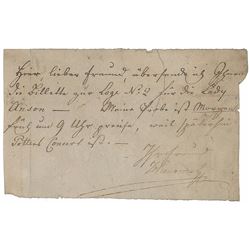 Hier, lieber Freund, übersende ich Ihnen
die Billette zur Loge No 2 für die Lady
Anson — Meine Probe ist Morgen
früh um 9 Uhr präcise, weil späterhin
Concert ist. —
Ihr Freund